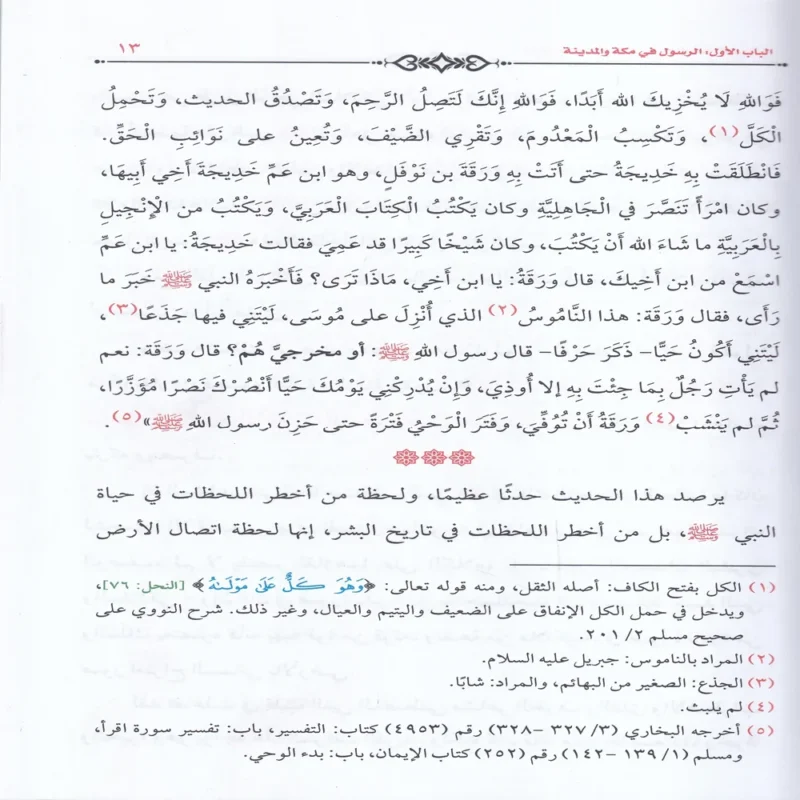 الباب الأول: الرسول في مكة والمدينة
١٣
فَوَاللهِ لَا يُخْزِيكَ الله أَبَدًا، فَوَاللهِ إِنَّكَ لَتَصِلُ الرَّحِمَ، وَتَصْدُقُ الحديث، وَتَحْمِلُ
الْكَلَّ(١)، وَتَكْسِبُ الْمَعْدُومَ، وَتَقْرِي الضَّيْفَ، وَتُعِينُ على نَوَائِبِ الْحَقِّ.
فَانْطَلَقَتْ بِهِ خَدِيجَةُ حتى أَتَتْ بِهِ وَرَقَةَ بن نَوْفَلٍ، وهو ابن عَمِّ خَدِيجَةَ أَخِي أَبِيهَا،
وكان امْرَأً تَنَصَّرَ في الْجَاهِلِيَّةِ وكان يَكْتُبُ الْكِتَابَ الْعَرَبِيَّ، وَيَكْتُبُ من الْإِنْجِيلِ
بِالْعَرَبِيَّةِ ما شَاءَ الله أَنْ يَكْتُبَ، وكان شَيْخًا كَبِيرًا قد عَمِيَ فقالت خَدِيجَةُ: يا ابن عَمِّ
اسْمَعْ من ابن أَخِيكَ، قال وَرَقَةُ: يا ابن أَخِي، مَاذَا تَرَى؟ فَأَخْبَرَهُ النبي ﷺ خَبَرَ ما
رَأَى، فقال وَرَقَةُ: هذا النَّامُوسُ(٢) الذي أُنْزِلَ على مُوسَى، لَيْتَنِي فيها جَذَعًا(٣)،
لَيْتَنِي أَكُونُ حَيًّا- ذَكَرَ حَرْفًا- قال رسول اللهِ ﷺ: أو مخرجيَّ هُمْ؟ قال وَرَقَةُ: نعم
لم يَأْتِ رَجُلٌ بِمَا جِئْتَ بِهِ إلا أُوذِيَ، وَإِنْ يُدْرِكْنِي يَوْمُكَ حَيًّا أَنْصُرْكَ نَصْرًا مُؤَزَّرًا،
ثُمَّ لم يَنْشَبْ(٤) وَرَقَةُ أَنْ تُوُفِّيَ، وَفَتَرَ الْوَحْيُ فَتْرَةً حتى حَزِنَ رسول اللهِ ﷺ»(٥).
يرصد هذا الحديث حدثًا عظيمًا، ولحظة من أخطر اللحظات في حياة
النبي ﷺ، بل من أخطر اللحظات في تاريخ البشر، إنها لحظة اتصال الأرض
(١) الكل بفتح الكاف: أصله الثقل، ومنه قوله تعالى: ﴿وَهُوَ كَلٌّ عَلَىٰ مَوْلَىٰهُ﴾ [النحل: ٧٦]،
ويدخل في حمل الكل الإنفاق على الضعيف واليتيم والعيال، وغير ذلك. شرح النووي على
صحيح مسلم ٢/ ٢٠١.
(٢) المراد بالناموس: جبريل عليه السلام.
(٣) الجذع: الصغير من البهائم، والمراد: شابًا.
(٤) لم يلبث.
(٥) أخرجه البخاري (٣/ ٣٢٧ -٣٢٨) رقم (٤٩٥٣) كتاب: التفسير، باب: تفسير سورة اقرأ،
ومسلم (١/ ١٣٩ -١٤٢) رقم (٢٥٢) كتاب الإيمان، باب: بدء الوحي.